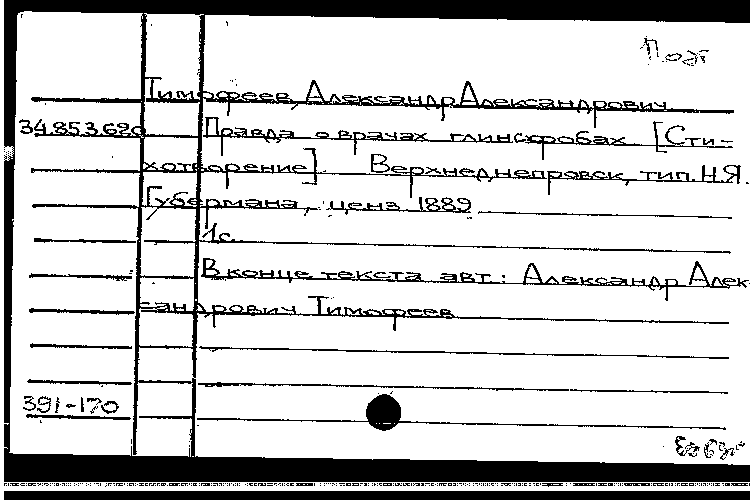 Тимофеев, Александр Александрович.
34.853.620 Правда о врачах глинскробах [Сти-
хотворение] Верхнеднепровск, тип. Н.Я.
Губермана, ценз. 1889
1 с.
В конце текста авт.: Александр Алек-
сандрович Тимофеев
391-170